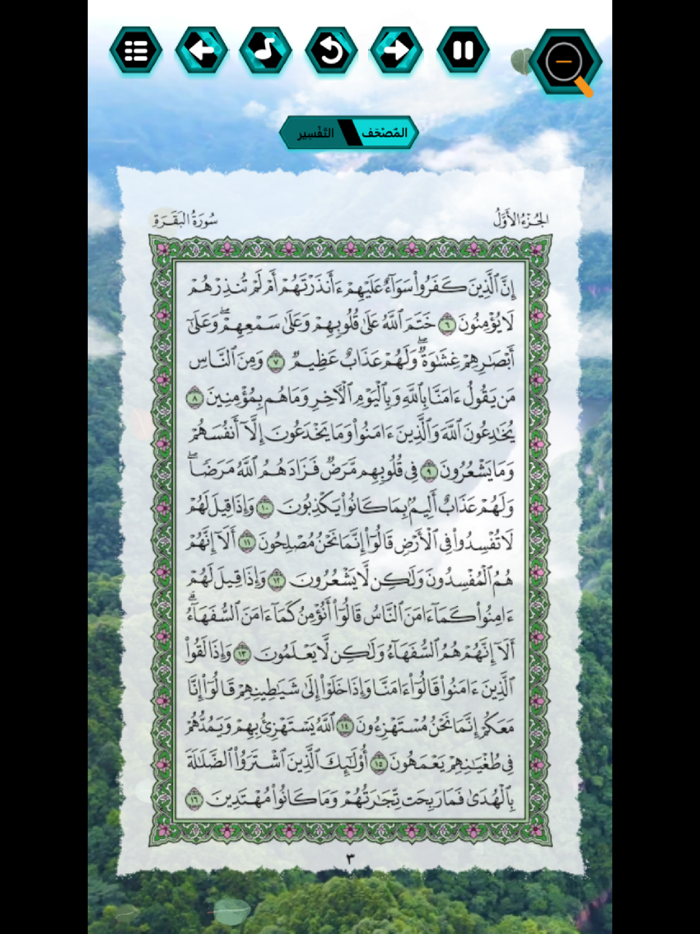 المُصْحَف
التَّفْسِير
الجُزْءُ الأَوَّلُ
سُورَةُ البَقَرَةِ
إِنَّ ٱلَّذِينَ كَفَرُوا۟ سَوَآءٌ عَلَيْهِمْ ءَأَنذَرْتَهُمْ أَمْ لَمْ تُنذِرْهُمْ
لَا يُؤْمِنُونَ ٦ خَتَمَ ٱللَّهُ عَلَىٰ قُلُوبِهِمْ وَعَلَىٰ سَمْعِهِمْ ۖ وَعَلَىٰٓ
أَبْصَـٰرِهِمْ غِشَـٰوَةٌ ۖ وَلَهُمْ عَذَابٌ عَظِيمٌ ٧ وَمِنَ ٱلنَّاسِ
مَن يَقُولُ ءَامَنَّا بِٱللَّهِ وَبِٱلْيَوْمِ ٱلْـَٔاخِرِ وَمَا هُم بِمُؤْمِنِينَ ٨
يُخَـٰدِعُونَ ٱللَّهَ وَٱلَّذِينَ ءَامَنُوا۟ وَمَا يَخْدَعُونَ إِلَّآ أَنفُسَهُمْ
وَمَا يَشْعُرُونَ ٩ فِى قُلُوبِهِم مَّرَضٌ فَزَادَهُمُ ٱللَّهُ مَرَضًا ۖ
وَلَهُمْ عَذَابٌ أَلِيمٌۢ بِمَا كَانُوا۟ يَكْذِبُونَ ١٠ وَإِذَا قِيلَ لَهُمْ
لَا تُفْسِدُوا۟ فِى ٱلْأَرْضِ قَالُوٓا۟ إِنَّمَا نَحْنُ مُصْلِحُونَ ١١ أَلَآ إِنَّهُمْ
هُمُ ٱلْمُفْسِدُونَ وَلَـٰكِن لَّا يَشْعُرُونَ ١٢ وَإِذَا قِيلَ لَهُمْ
ءَامِنُوا۟ كَمَآ ءَامَنَ ٱلنَّاسُ قَالُوٓا۟ أَنُؤْمِنُ كَمَآ ءَامَنَ ٱلسُّفَهَآءُ ۗ
أَلَآ إِنَّهُمْ هُمُ ٱلسُّفَهَآءُ وَلَـٰكِن لَّا يَعْلَمُونَ ١٣ وَإِذَا لَقُوا۟
ٱلَّذِينَ ءَامَنُوا۟ قَالُوٓا۟ ءَامَنَّا وَإِذَا خَلَوْا۟ إِلَىٰ شَيَـٰطِينِهِمْ قَالُوٓا۟ إِنَّا
مَعَكُمْ إِنَّمَا نَحْنُ مُسْتَهْزِءُونَ ١٤ ٱللَّهُ يَسْتَهْزِئُ بِهِمْ وَيَمُدُّهُمْ
فِى طُغْيَـٰنِهِمْ يَعْمَهُونَ ١٥ أُو۟لَـٰٓئِكَ ٱلَّذِينَ ٱشْتَرَوُا۟ ٱلضَّلَـٰلَةَ
بِٱلْهُدَىٰ فَمَا رَبِحَت تِّجَـٰرَتُهُمْ وَمَا كَانُوا۟ مُهْتَدِينَ ١٦
٣